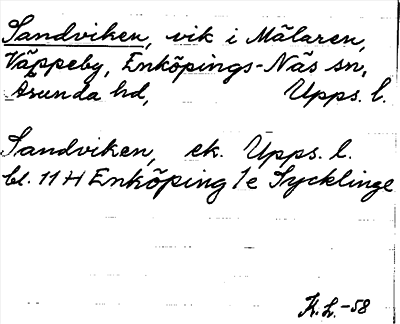 Sandviken, vik i Mälaren,
Väppeby, Enköpings-Näs sn,
Åsunda hd, Upps. l.
Sandviken, ek. Upps. l.
bl. 11 H Enköping 1e Sycklinge
K.L.-58